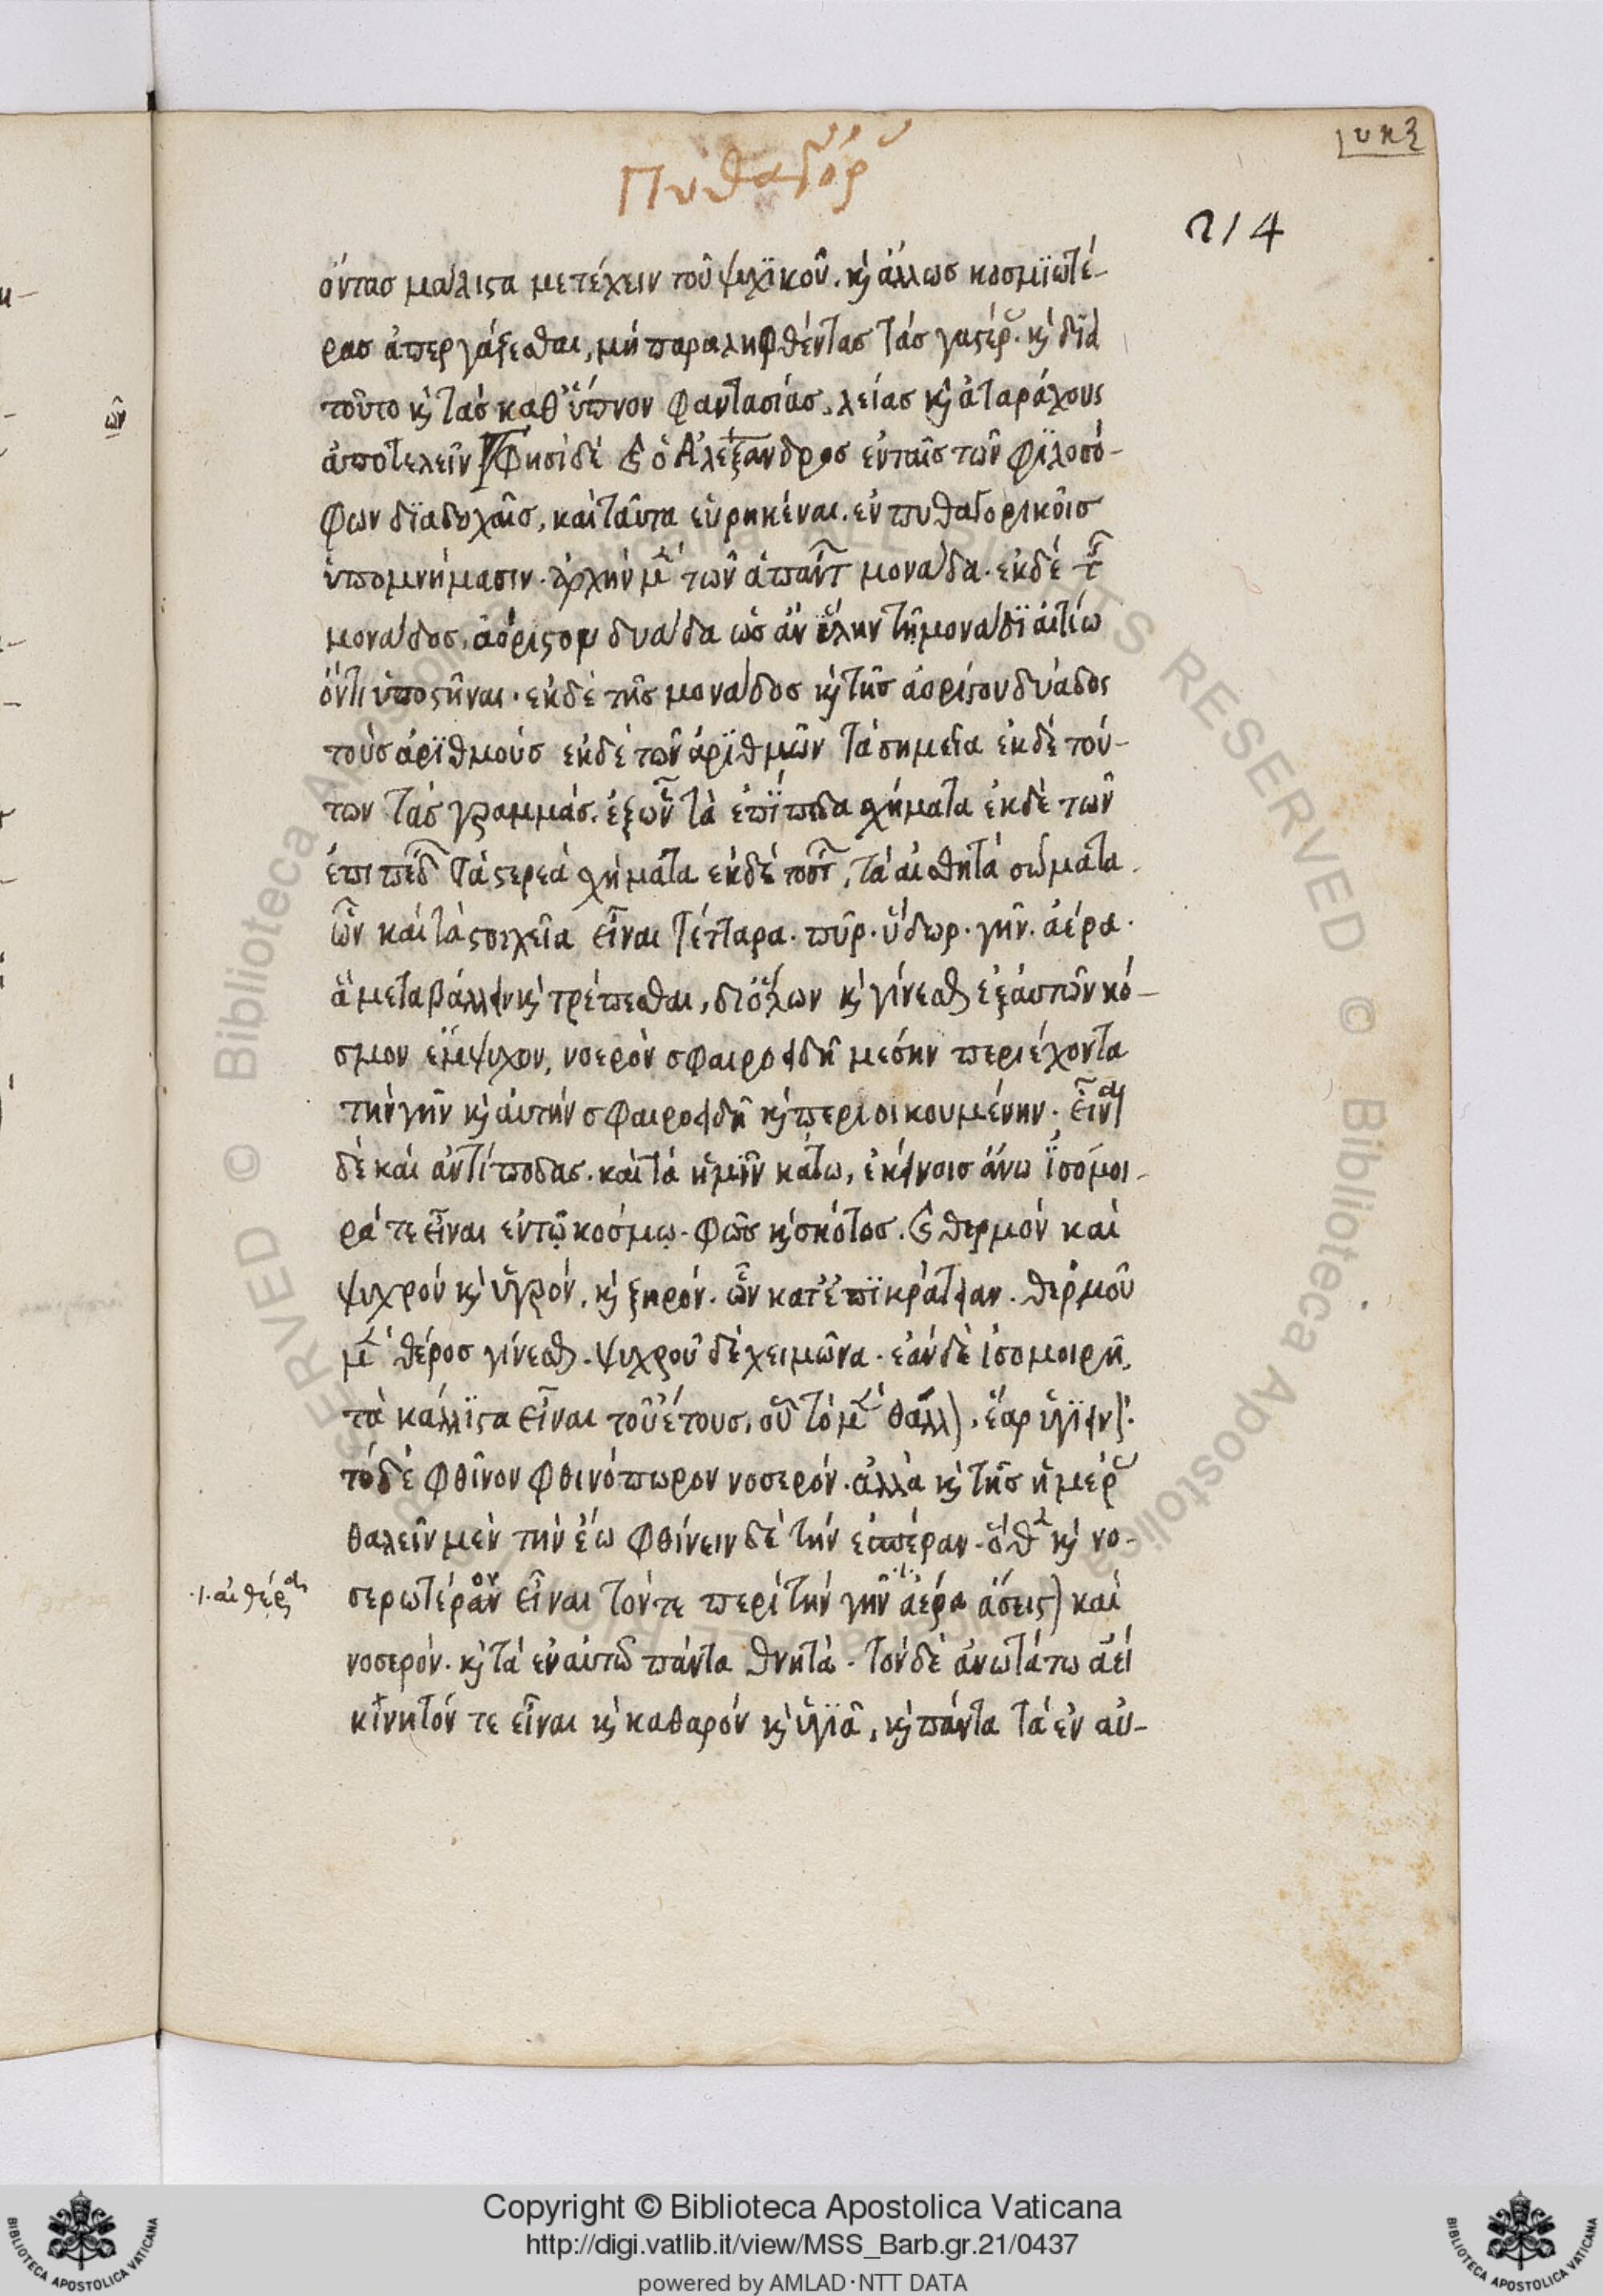 υκζ
Πυθαγόρ
214
όντασ μάλιςα μετέχειν τοῦ ψυχϊκοῦ. κὴ άλλωσ κοσμϊωτέ-
ρασ ἀπεργάζεσθαι, μή παραληφθέντασ τάσ γαςέρ. κὴ δϊά
τοῦτο κὴ τάσ καθ' ὕπνον φαντασίασ, λείασ κὴ ἀταράχους
ἀποτελεῖν Φησὶ δέ ὁ Αλέξανδρος ἐν ταῖσ τῶν φϊλοσό-
φων δϊαδοχαῖσ, καὶ ταῦτα εὑρηκέναι. ἐν πυθαγορικοῖσ
ὑπομνήμασιν. ἀρχὴν μ τῶν ἁπάντ μονάδα. ἐκ δέ τ
μονάδοσ, ἀόριςον δυάδα ὡσ ἂν ὕλην τῆ μονάδϊ αἰτίω
ὄντι ὑποςῆναι. ἐκ δὲ τῆσ μονάδοσ κὴ τῆσ ἀορίςου δυάδος
τούσ ἀρϊθμούσ ἐκ δέ τῶν ἀρϊθμῶν τά σημεῖα ἐκ δέ τού-
των τάσ γραμμάσ. ἐξ ὧν τὰ ἐπϊπεδα σχήματα ἐκ δὲ τῶν
ἐπιπέδ τά ςερεά σχήματα ἐκ δέ τούτ, τά αἰσθητά σώματα.
ὧν καί τά ςοιχεῖα εἶναι τέτταρα. πῦρ. ὕδωρ. γῆν. ἀέρα.
ἃ μεταβάλλειν κὴ τρέπεσθαι, δι' ὅλων κὴ γίνεσθ ἐξ αὐτῶν κό-
σμον ἔμψυχον, νοερόν σφαιροειδῆ μέσην περιέχοντα
τήν γῆν κὴ αὐτήν σφαιροειδῆ κὴ περιοικουμένην. εἶναι
δέ καί ἀντίποδασ. καί τά ἡμῖν κάτω, ἐκείνοισ άνω ϊσόμοι-
ρά τε εἶναι ἐν τῷ κόσμῳ. φῶσ κὴ σκότοσ. κ θερμόν καί
ψυχρόν κὴ ὑγρόν, κὴ ξηρόν. ὧν κατ' ἐπϊκράτειαν. θερμοῦ
μ θέροσ γίνεσθ. ψυχροῦ δέ χειμῶνα. ἐάν δέ ἰσομοιρῆ,
τά κάλλϊςα εἶναι τοῦ έτουσ, οὗ τό μ θάλλ, ἔαρ ὑγϊειν.
τό δέ φθῖνον φθινόπωρον νοσερόν. ἀλλά κὴ τῆσ ἡμέρ
θαλεῖν μέν τήν ἕω φθίνειν δέ τήν ἑσπέραν. ὅθ κὴ νο-
σερωτέραν εἶναι τόν τε περί τήν γῆν ἀέρα ἄσεις καί
·/· αἰθέρα
νοσερόν. κὴ τά ἐν αὐτῶ πάντα θνητά. τόν δέ ἀνωτάτω ἀεί
κίνητόν τε εἶναι κὴ καθαρόν κὴ ὑγϊᾶ, κὴ πάντα τά ἐν αὐ-
ὧν
Copyright © Biblioteca Apostolica Vaticana
http://digi.vatlib.it/view/MSS_Barb.gr.21/0437
powered by AMLAD·NTT DATA
BIBLIOTECA APOSTOLICA VATICANA
BIBLIOTECA APOSTOLICA VATICANA